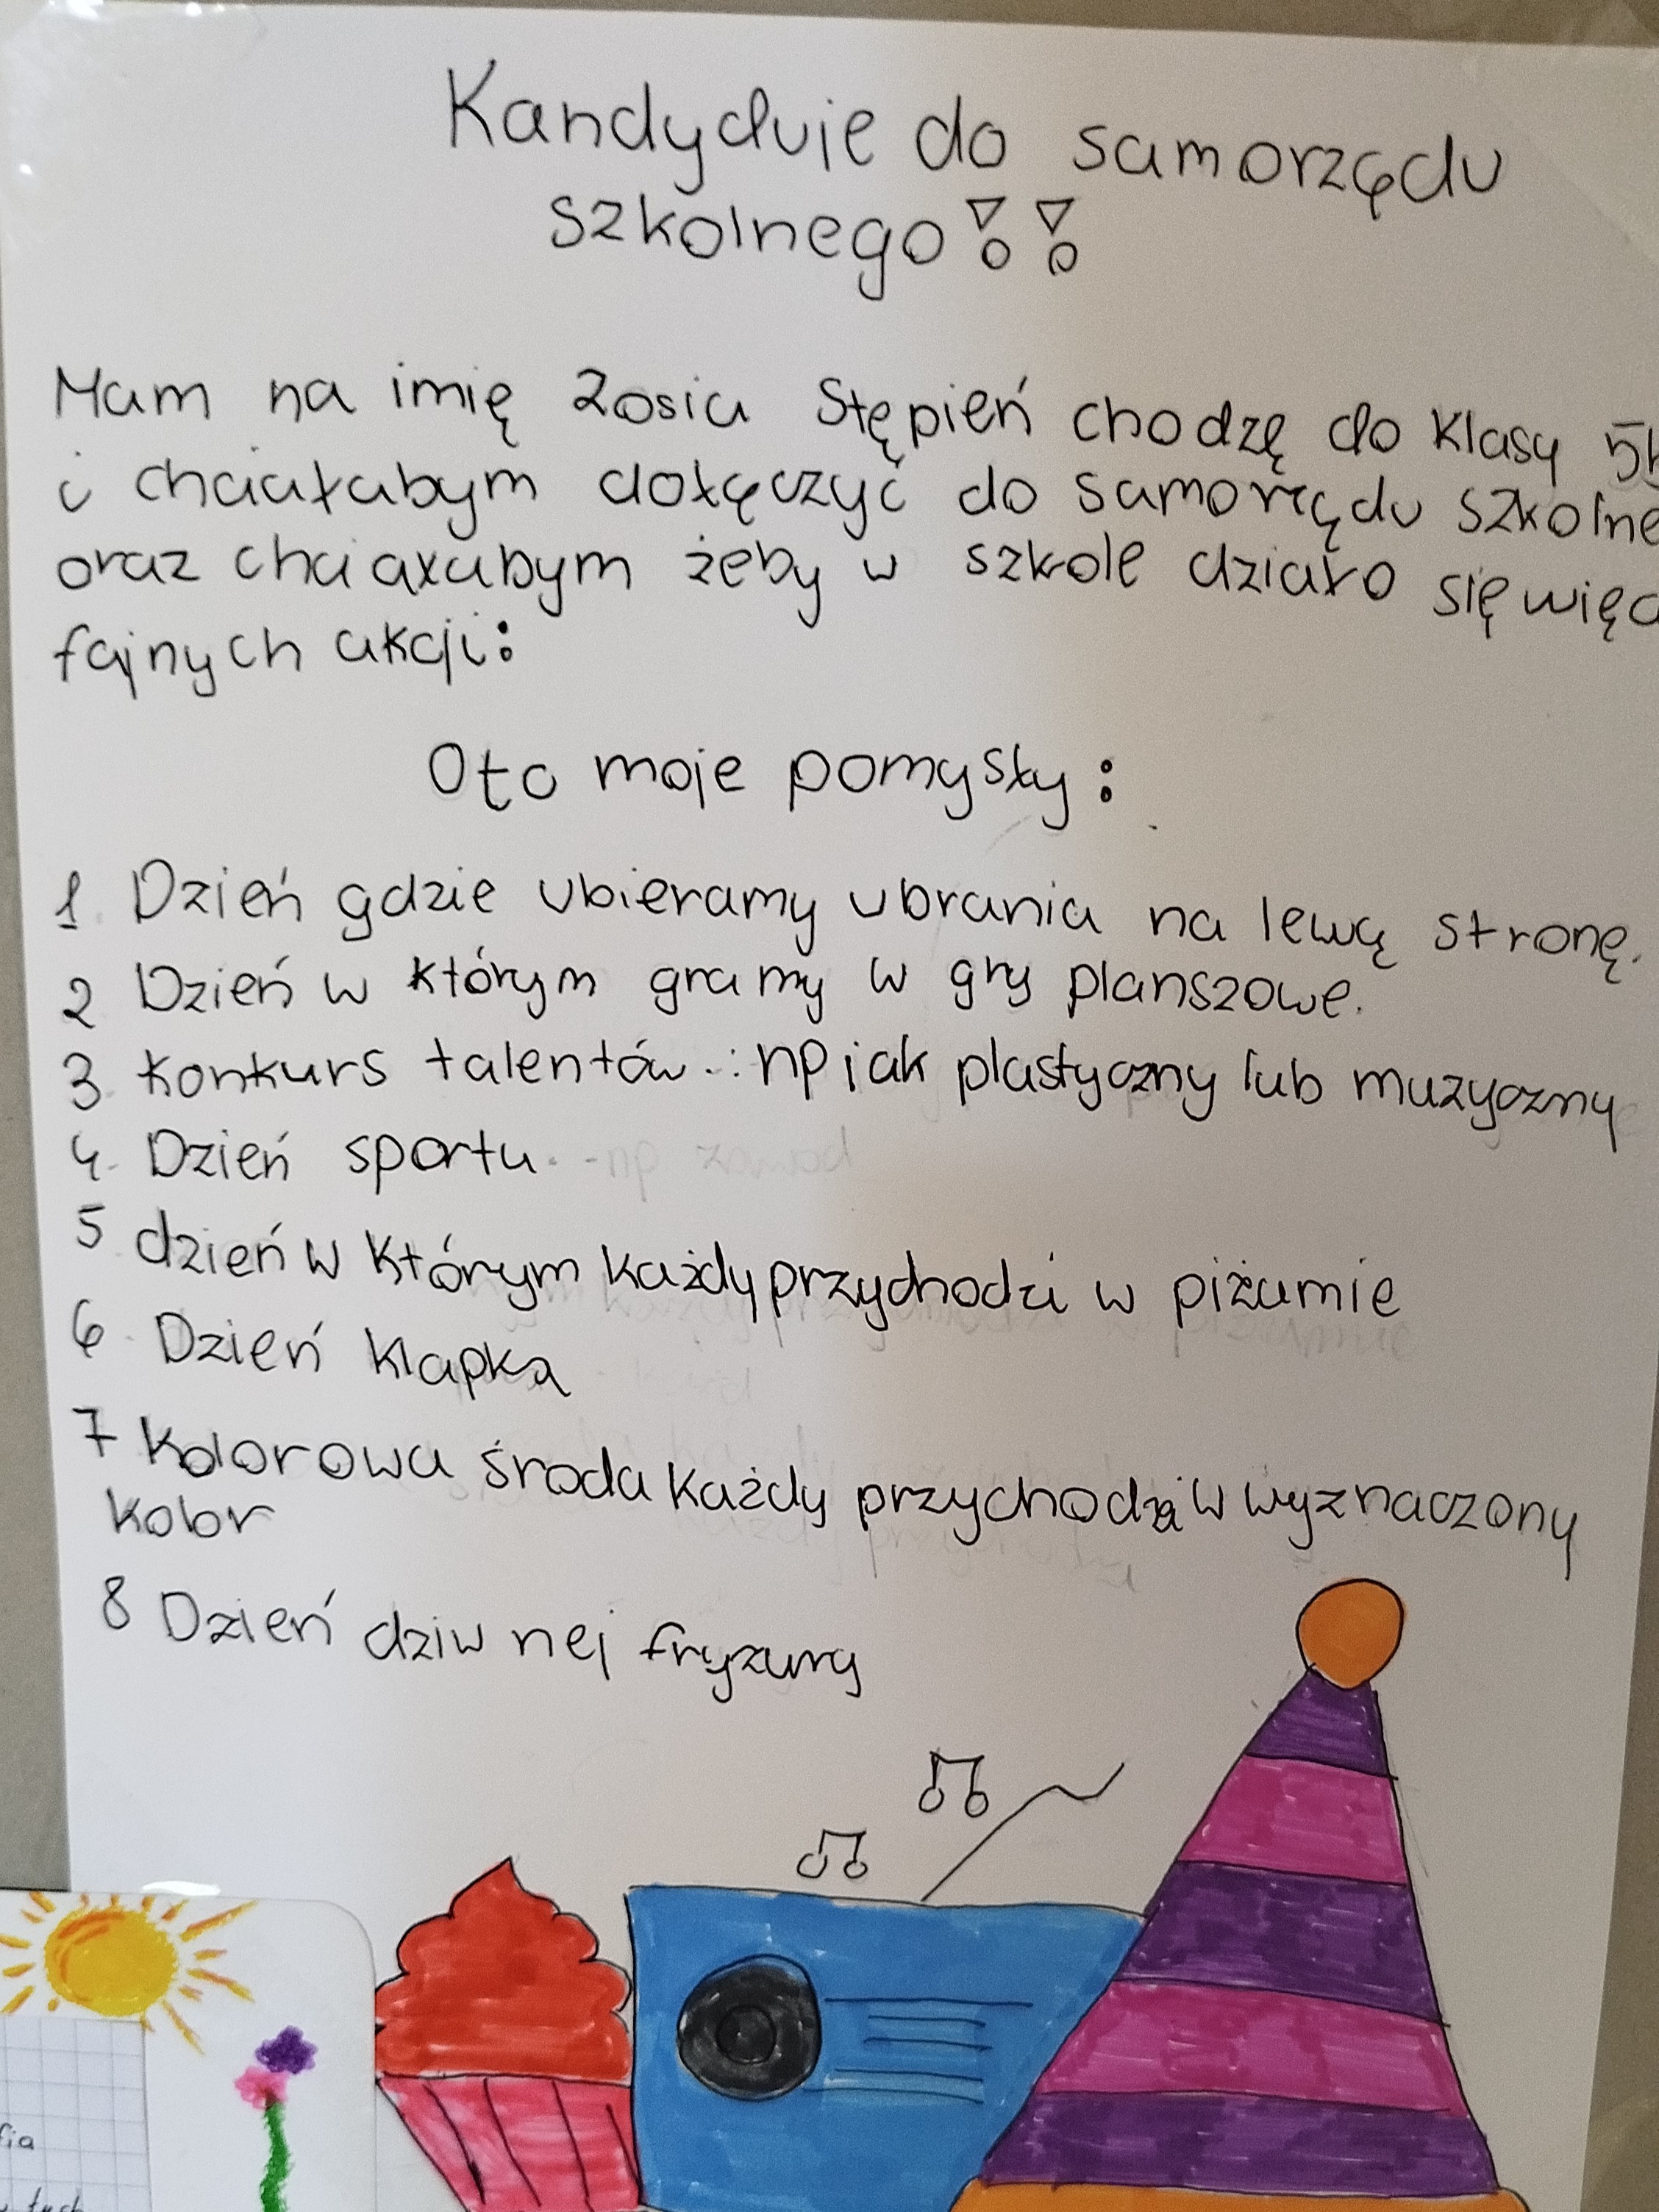 Kandyduie do samorzędu
szkolnego!!
Mam na imię Zosia Stępień chodzę do klasy 5b
i chciałabym dołączyć do samorządu szkolne
oraz chciałabym żeby w szkole działo się więc
fajnych akcji:
Oto moje pomysły:
1. Dzień gdzie ubieramy ubrania na lewą stronę.
2 Dzień w którym gramy w gry planszowe.
3. Konkurs talentów.: np jak plastyczny lub muzyczny
4. Dzień sportu.
5 dzień w którym każdy przychodzi w piżamie
6. Dzień klapka
7 Kolorowa środa każdy przychodzi w wyznaczony
kolor
8 Dzień dziwnej fryzury
fia
tych